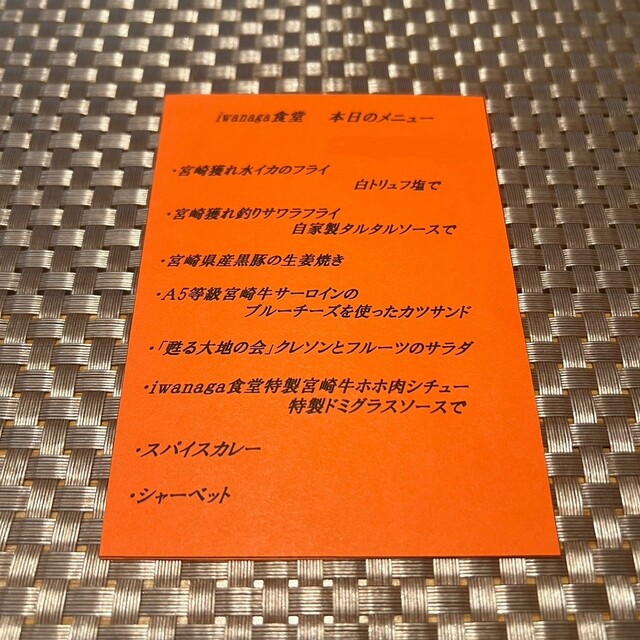 iwanaga食堂　本日のメニュー
・宮崎獲れ水イカのフライ
白トリュフ塩で
・宮崎獲れ釣りサワラフライ
自家製タルタルソースで
・宮崎県産黒豚の生姜焼き
・A5等級宮崎牛サーロインの
ブルーチーズを使ったカツサンド
・「甦る大地の会」クレソンとフルーツのサラダ
・iwanaga食堂特製宮崎牛ホホ肉シチュー
特製ドミグラスソースで
・スパイスカレー
・シャーベット